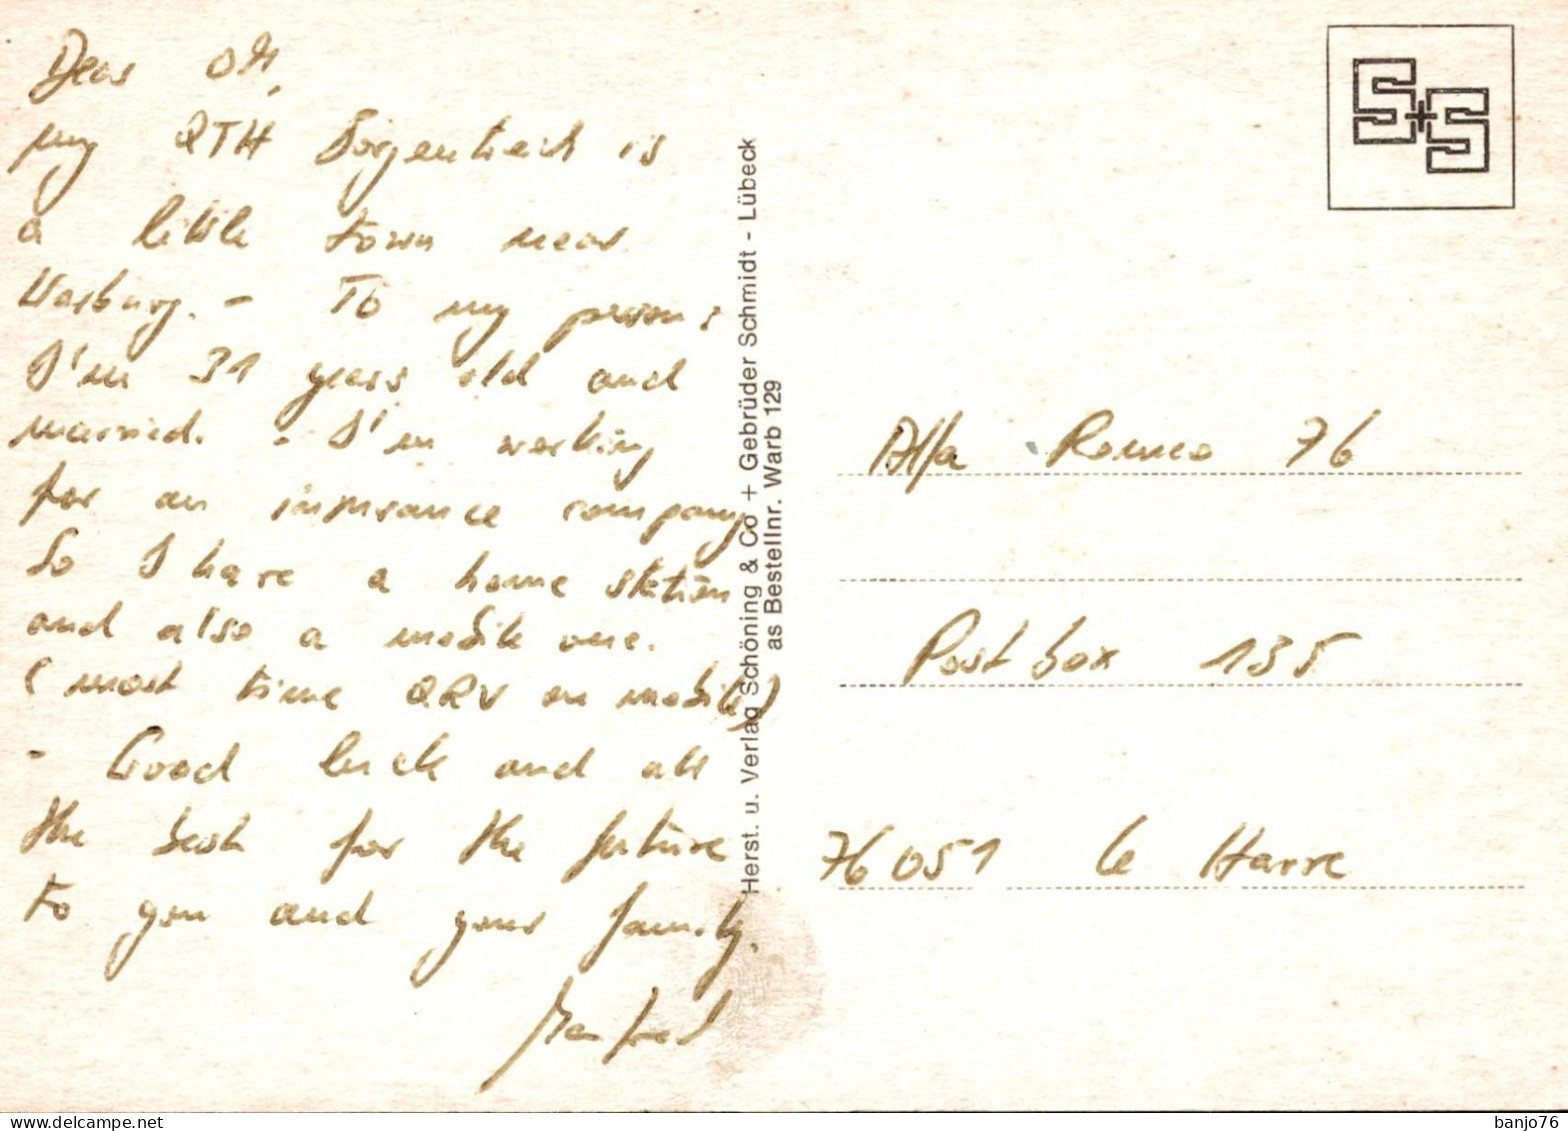 Dear OM,
my QTH Borgentreich is
a little town near
Warburg. - To my person:
I'm 31 years old and
married. - I'm working
for an insurance company
So I have a home station
and also a mobile one.
(most time QRV on mobile)
- Good luck and all
the best for the future
to you and your family.
Manfred
Herst. u. Verlag Schöning & Co + Gebrüder Schmidt - Lübeck
as Bestellnr. Warb 129
S+S
Alfa Romeo 76
Postbox 135
76051 Le Havre
banjo76